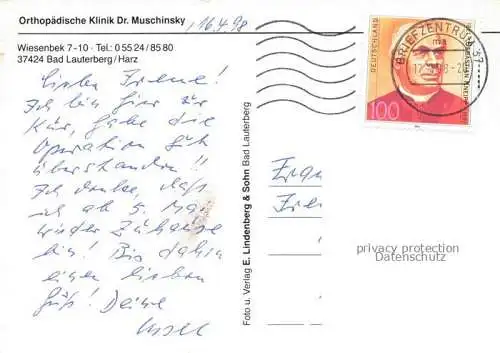 Orthopädische Klinik Dr. Muschinsky
Wiesenbek 7-10 · Tel.: 0 55 24 / 85 80
37424 Bad Lauterberg / Harz
16.4.98
Ich bin hier zur
Kur, habe die
Operation gut
überstanden!!
Ich denke, daß
ich ab 5. Mai
wieder Zuhause
bin! Bis dahin
einen lieben
Gruß! Deine
Foto u. Verlag E. Lindenberg & Sohn Bad Lauterberg
DEUTSCHLAND
100
SEBASTIAN KNEIPP
BRIEFZENTRUM 37
Frau
privacy protection
Datenschutz